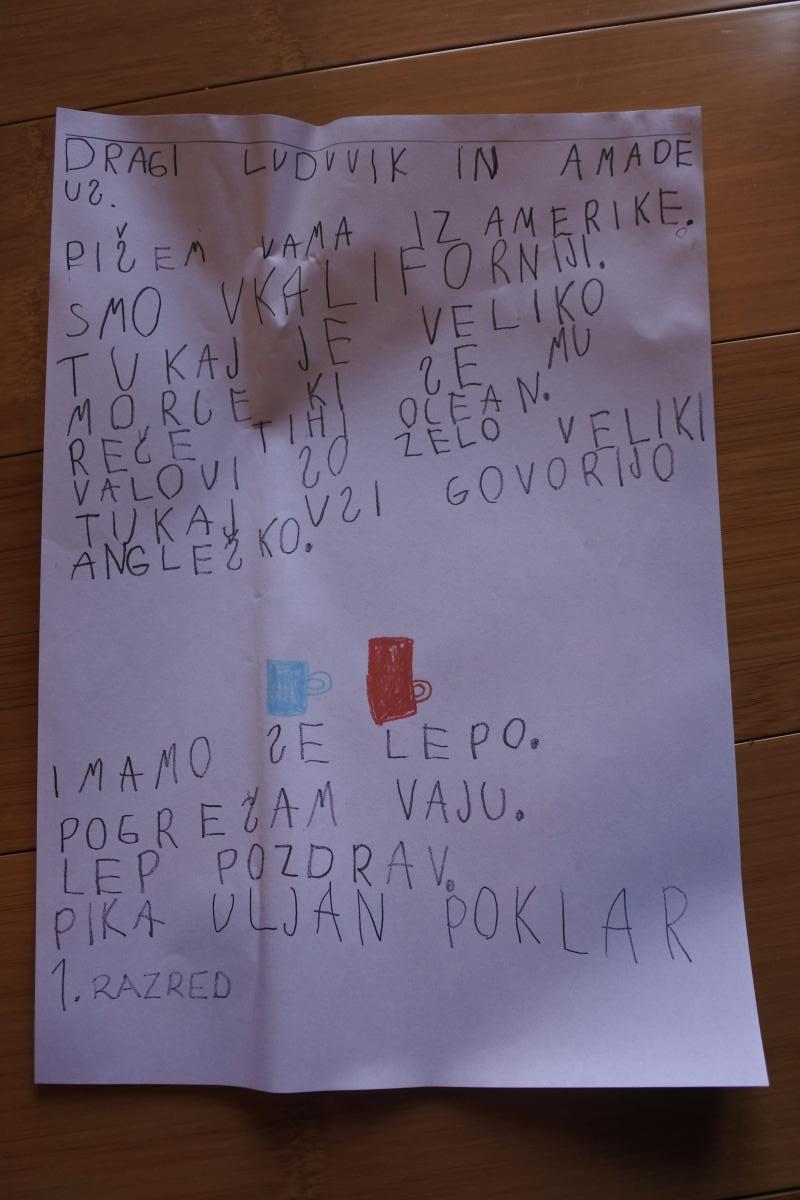 DRAGI LUDVVIK IN AMADE
US.
PIŠEM VAMA IZ AMERIKE.
SMO VKALIFORNIJI.
TUKAJ JE VELIKO
MORJE KI SE MU
REČE TIHI OCEAN.
VALOVI SO ZELO VELIKI
TUKAJ VSI GOVORIJO
ANGLEŠKO.
IMAMO SE LEPO.
POGREŠAM VAJU.
LEP POZDRAV.
PIKA ULJAN POKLAR
1. RAZRED